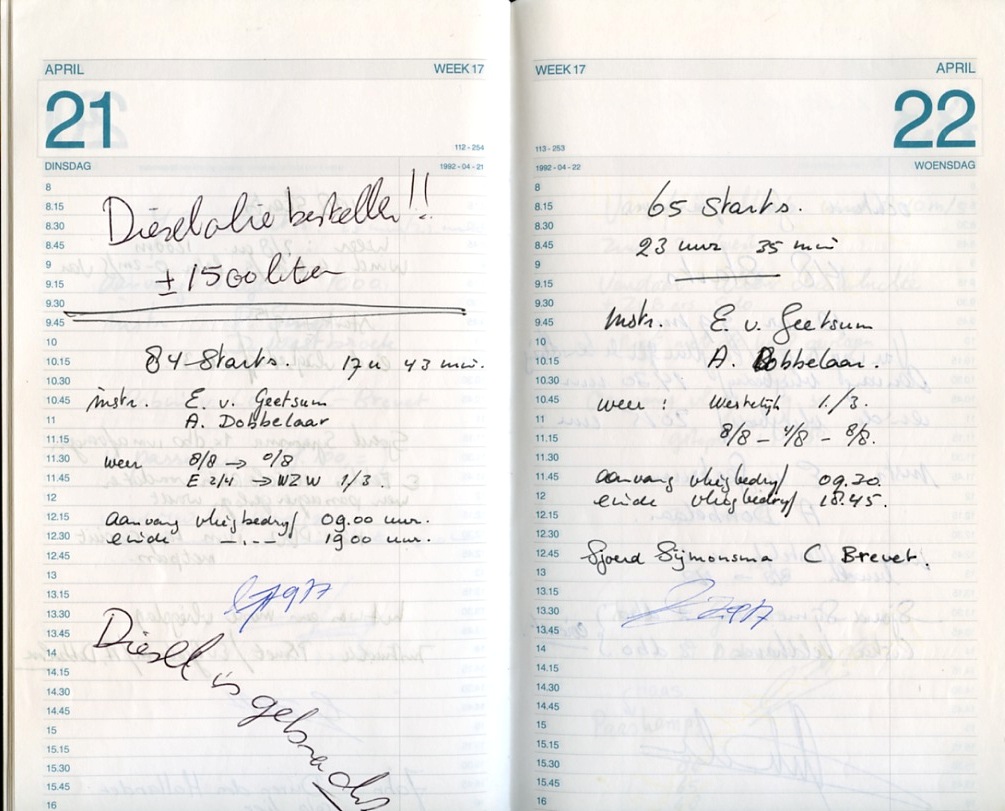 APRIL WEEK 17
21
112 - 254
DINSDAG 1992 - 04 - 21
8
8.15
8.30
8.45
9
9.15
9.30
9.45
10
10.15
10.30
10.45
11
11.15
11.30
11.45
12
12.15
12.30
12.45
13
13.15
13.30
13.45
14
14.15
14.30
14.45
15
15.15
15.30
15.45
16
Dieselolie bestellen!!
± 1500 liter
84 Starts. 17 u 43 min.
instr. E. v. Geetsum
A. Dobbelaar
weer 8/8 → 0/8
E 2/4 → WZW 1/3.
aanvang vliegbedryf 09.00 uur.
einde - . - 19.00 uur.
Diesel is gebracht
WEEK 17 APRIL
22
113 - 253
1992 - 04 - 22 WOENSDAG
8
8.15
8.30
8.45
9
9.15
9.30
9.45
10
10.15
10.30
10.45
11
11.15
11.30
11.45
12
12.15
12.30
12.45
13
13.15
13.30
13.45
14
14.15
14.30
14.45
15
15.15
15.30
15.45
16
65 Starts.
23 uur 35 min
Instr. E. v. Geetsum
A. Dobbelaar.
weer : Westelijk 1/3.
8/8 - 4/8 - 8/8.
aanvang vliegbedryf 09.20.
einde vliegbedryf 18.45.
Sjoerd Sijmonsma C Brevet.